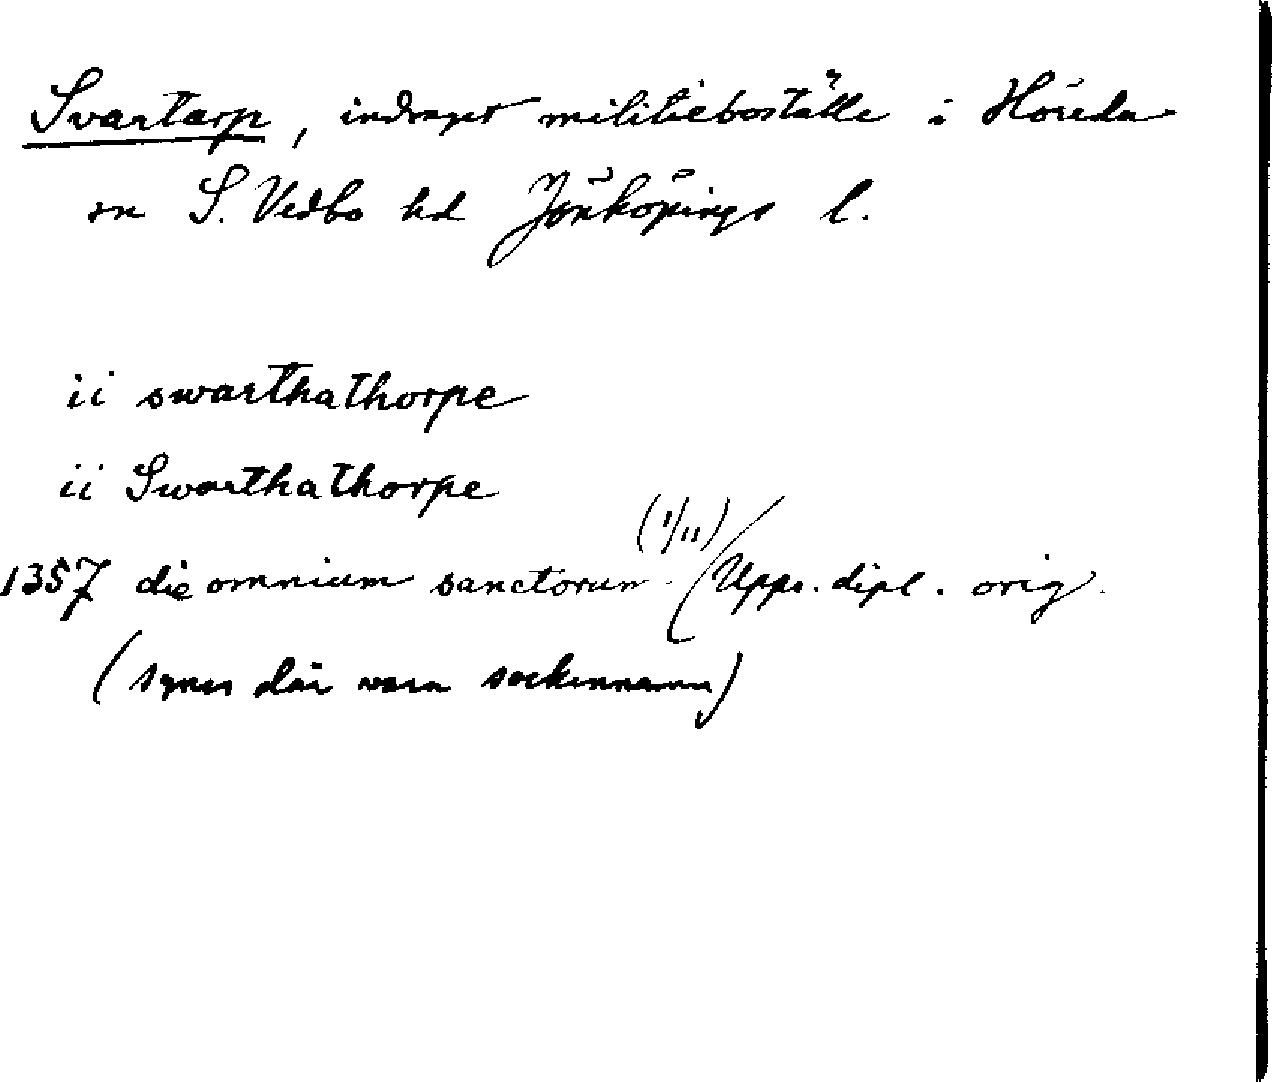 Svartarp, indraget militieboställe i Höreda
sn S. Vedbo hd Jönköpings l.
ii swarthathorpe
ii Swarthathorpe
(1/11)
1357 die omnium sanctorum. (Upps. dipl. orig.
(synes där vara sockennamn)